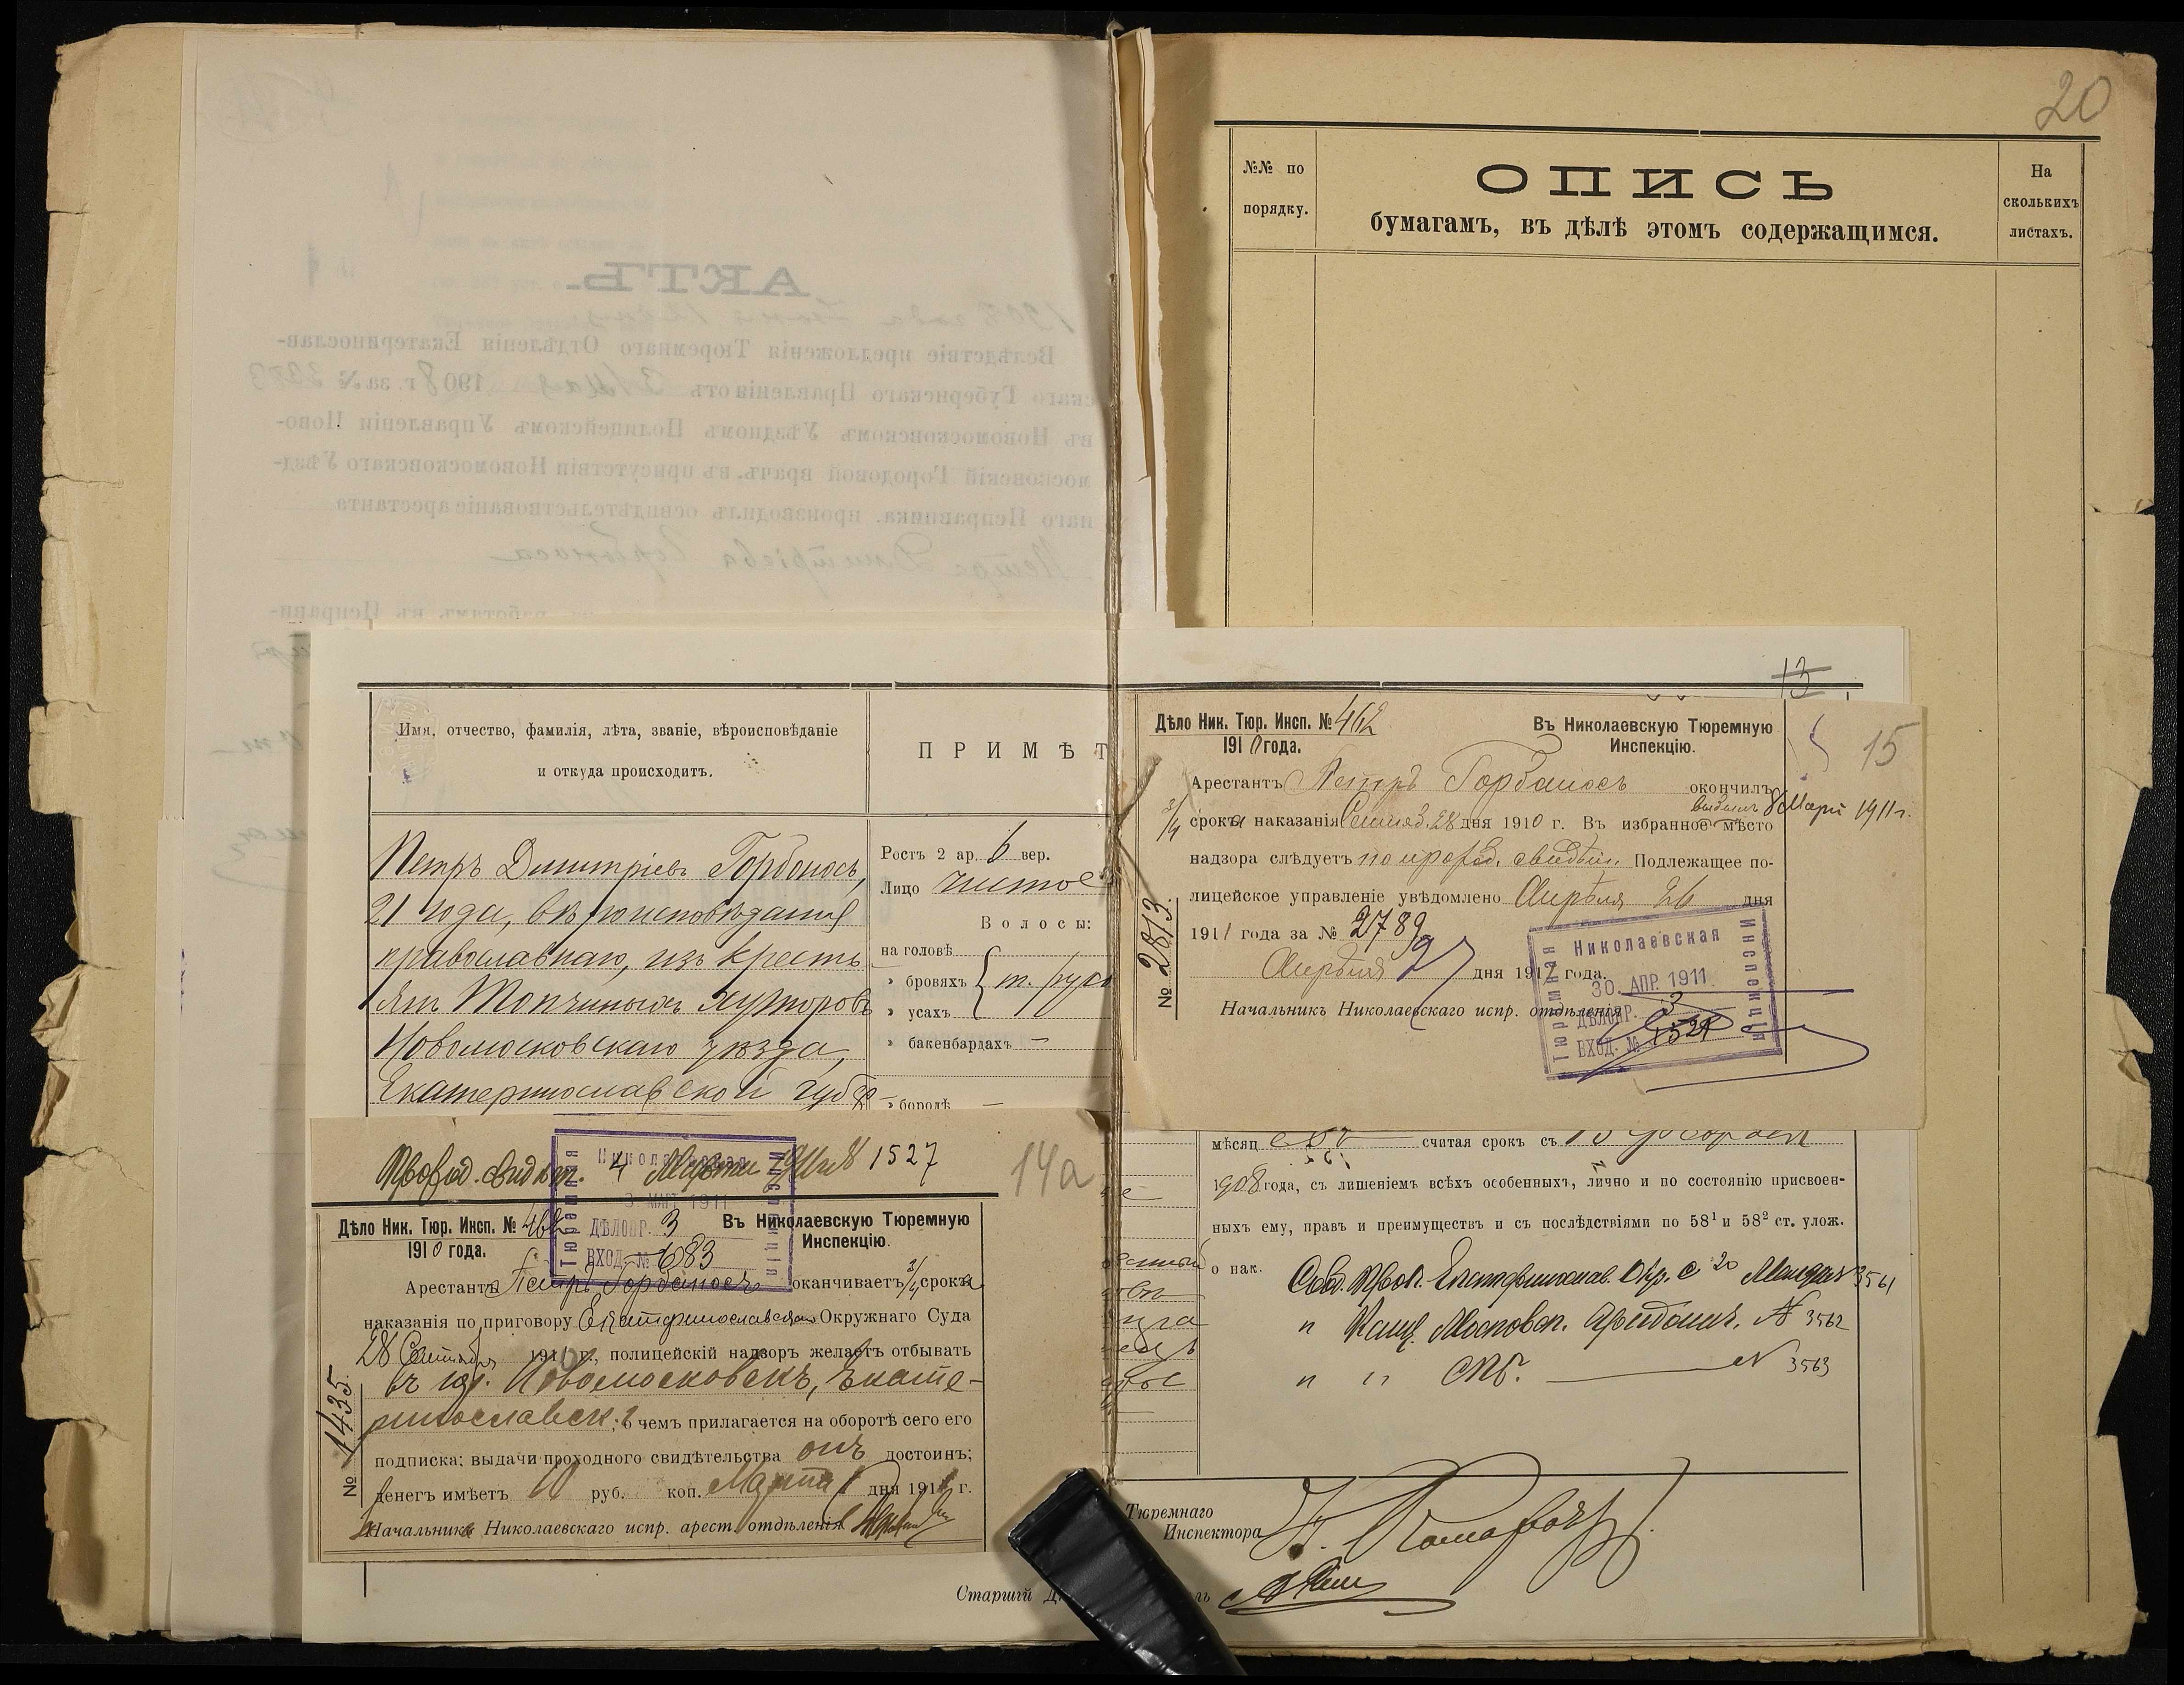 20
№№ по порядку.
ОПИСЬ
бумагамъ, въ дѣлѣ этомъ содержащимся.
На сколькихъ листахъ.
АКТЪ.
1908 года
Вслѣдствіе предложенія Тюремнаго Отдѣленія Екатеринослав-
скаго Губернскаго Правленія отъ 31 Мая 1908 г. за №
въ Новомосковскомъ Уѣздномъ Полицейскомъ Управленіи Ново-
московскій Городовой врачъ, въ присутствіи Новомосковскаго Уѣзд-
наго Исправника, производилъ освидѣтельствованіе арестанта
Петра Дмитріева Горбоноса
13
Имя, отчество, фамилія, лѣта, званіе, вѣроисповѣданіе
и откуда происходитъ.
ПРИМѢТ
Петръ Дмитріевъ Горбоносъ,
21 года, вѣроисповѣданія
православнаго, изъ кресть
янъ Хуторовъ
Новомосковскаго уѣзда,
Екатеринославской губ
Ростъ 2 ар. 6 вер.
Лицо чистое
Волосы:
на головѣ
" бровяхъ т. рус
" усахъ
" бакенбардахъ —
" бородѣ —
15
Дѣло Ник. Тюр. Инсп. № 462
1910 года.
Въ Николаевскую Тюремную
Инспекцію.
Арестантъ Петръ Горбоносъ окончилъ
3/4 срока наказанія Сентяб. 28 дня 1910 г. Въ избранное мѣсто
8 Март 1911 г.
надзора слѣдуетъ по проход. свидѣт. Подлежащее по-
лицейское управленіе увѣдомлено Апрѣля 26 дня
1911 года за № 2789
Апрѣля 27 дня 191 года.
Начальникъ Николаевскаго испр. отдѣленія
№ 2813.
Николаевская Тюремная Инспекція
30. АПР. 1911
ДѢЛОПР. 3
ВХОД. №
14а
Проход. свидѣт. 4 Марта № 1527
Николаевская Тюремная Инспекція
3 МАР. 1911
ДѢЛОПР. 3
ВХОД. № 1683
Дѣло Ник. Тюр. Инсп. № 462
1910 года.
Въ Николаевскую Тюремную
Инспекцію.
Арестантъ Петръ Горбоносъ оканчиваетъ 3/4 срока
наказанія по приговору Екатеринославскаго Окружнаго Суда
28 Сентября 191 г., полицейскій надзоръ желаетъ отбывать
въ гор. Новомосковскъ, Екате-
ринославск. г о чемъ прилагается на оборотѣ сего его
подписка; выдачи проходного свидѣтельства онъ достоинъ;
денегъ имѣетъ 10 руб. коп. Марта 1 дня 1911 г.
Начальникъ Николаевскаго испр. арест. отдѣленія
№ 1435.
мѣсяц считая срокъ съ
1908 года, съ лишеніемъ всѣхъ особенныхъ, лично и по состоянію присвоен-
ныхъ ему, правъ и преимуществъ и съ послѣдствіями по 58¹ и 58² ст. улож.
о нак.
Екатеринослав. Окр. С 3561
" Канц. Московск. № 3562
" " СПб. — № 3563
Тюремнаго
Инспектора
Старшій Д
ль